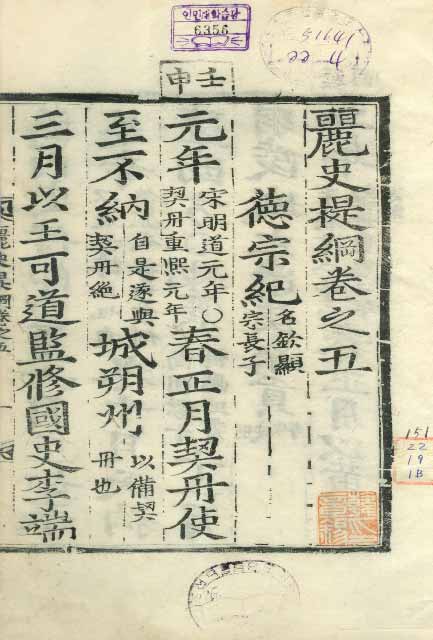 인민대학습당
6356
壬申
麗史提綱卷之五
德宗紀
名欽顯
宗長子
元年
宋明道元年○
契丹重熙元年
春正月契丹使
至不納
自是遂與
契丹絶
城朔州
以備契
丹也
三月以王可道監修國史李端
麗史提綱卷之五
151
22
19
1B